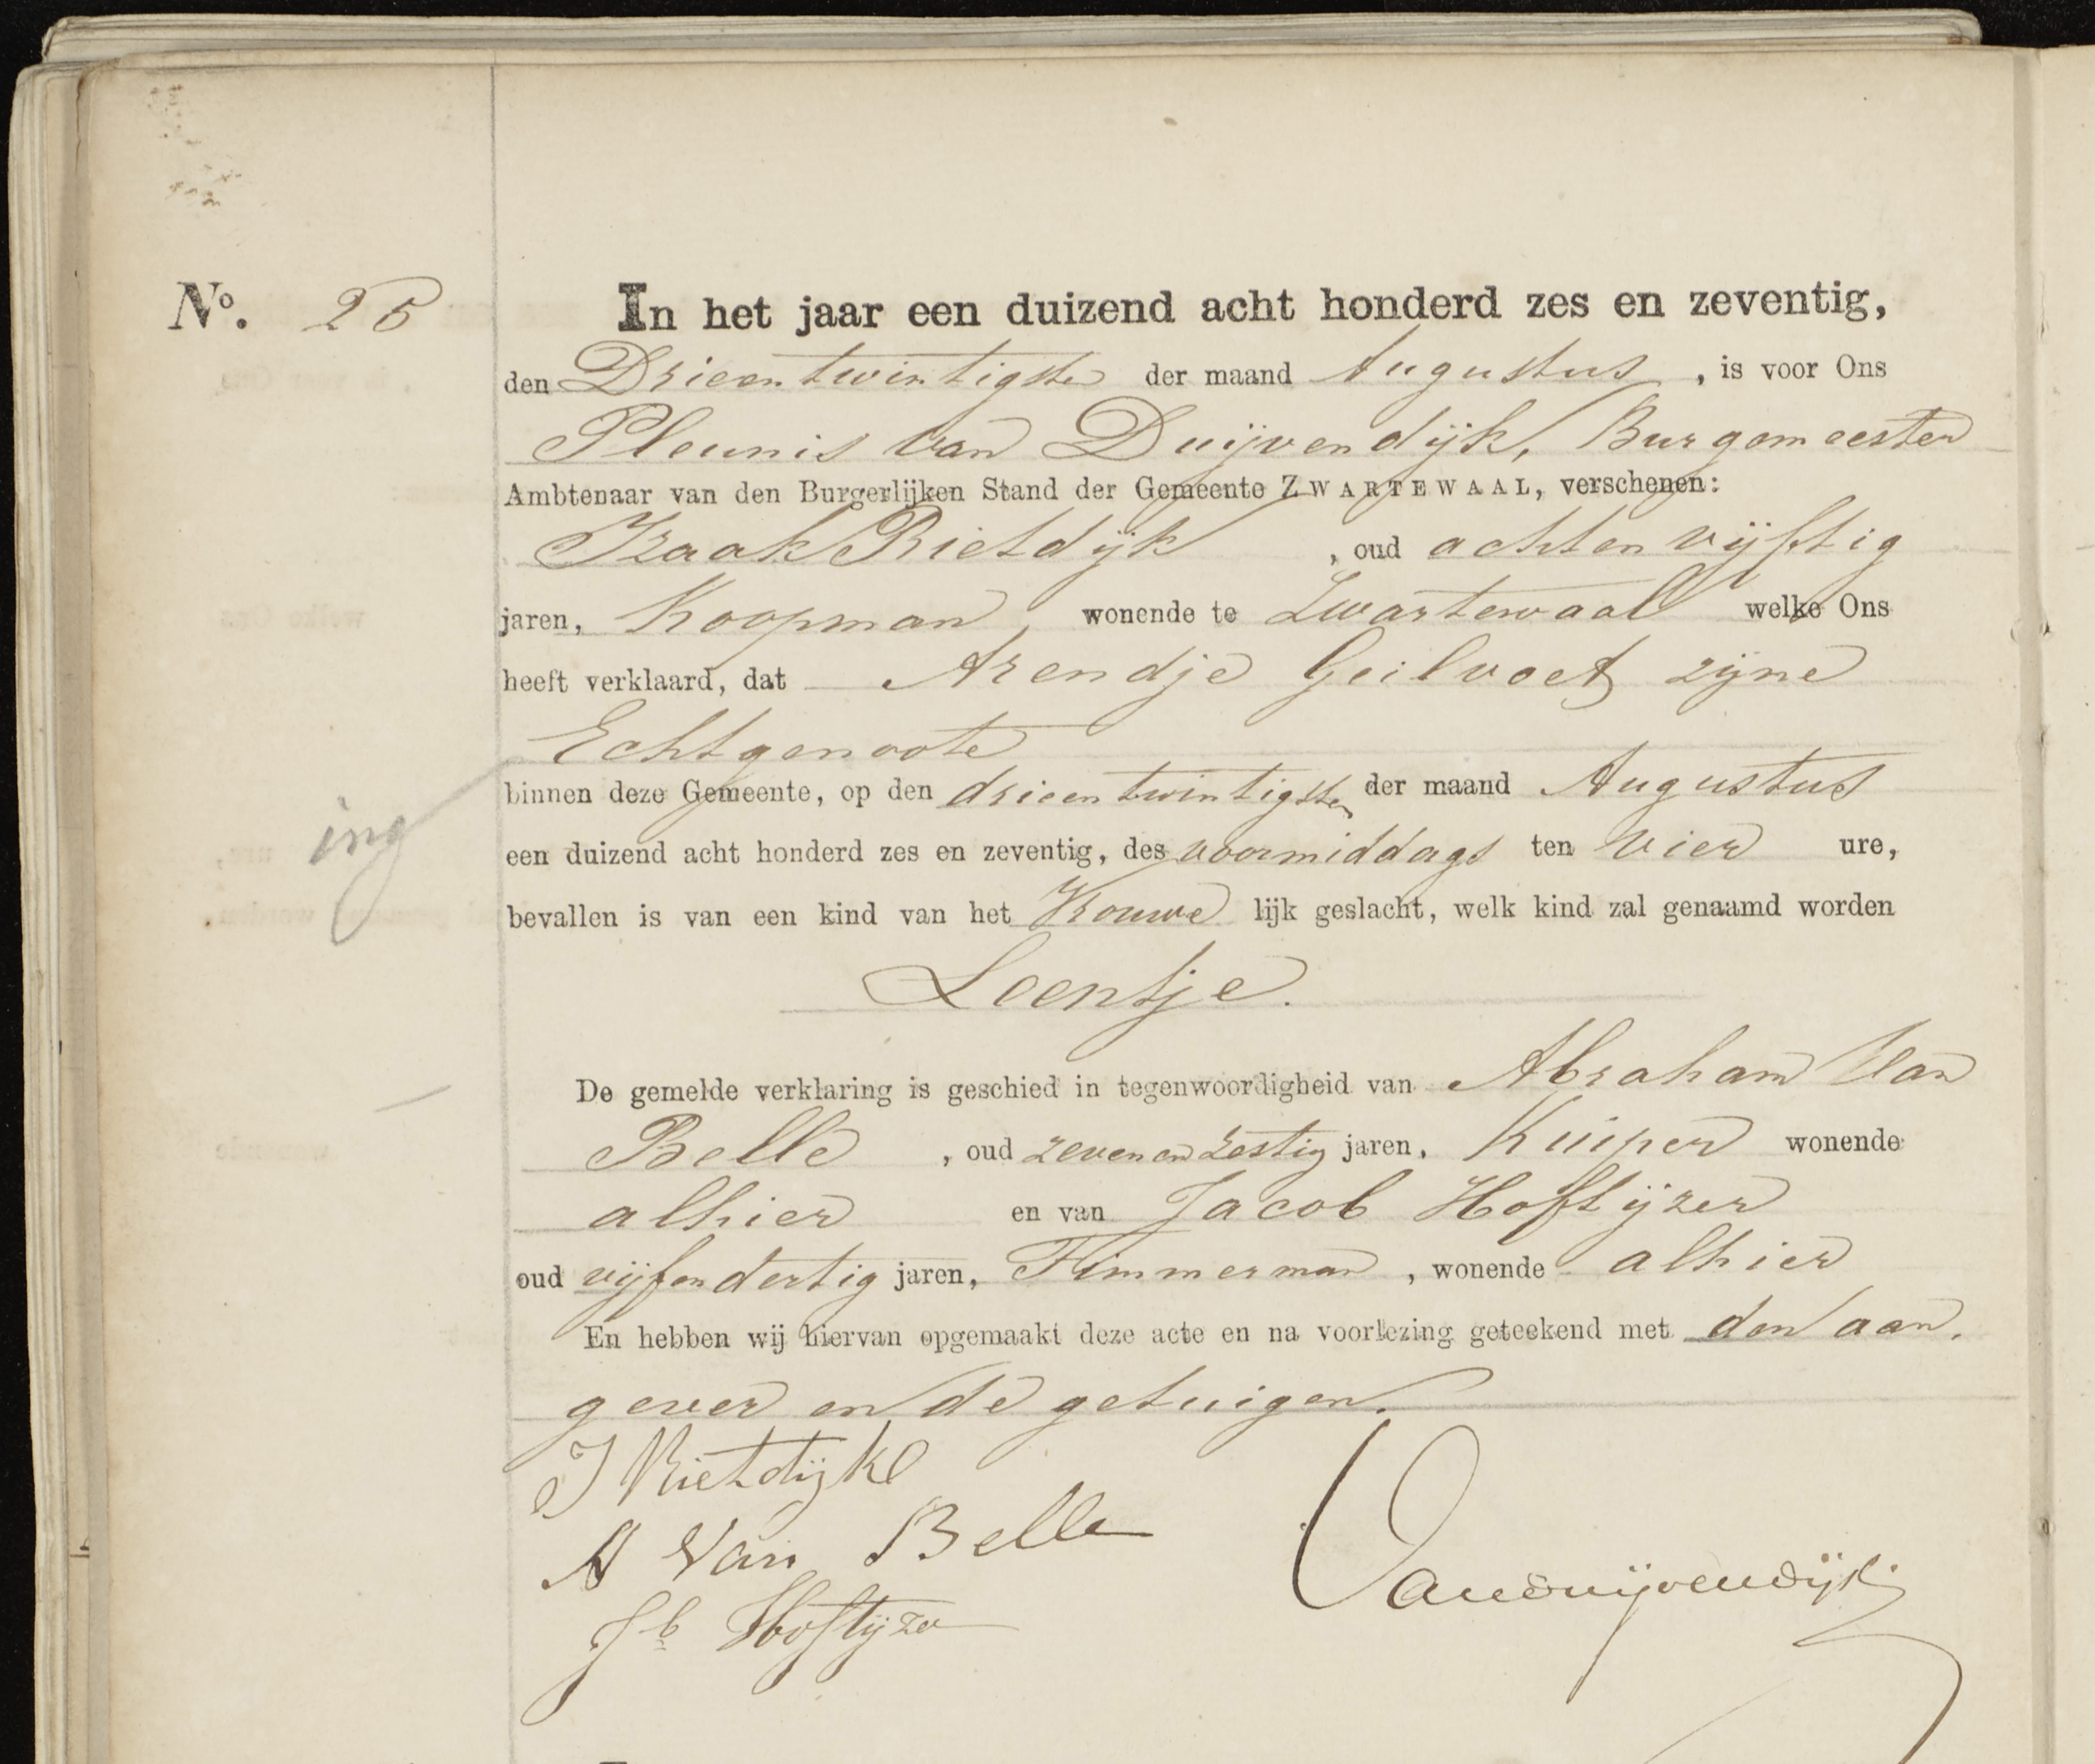 No. 25
In het jaar een duizend acht honderd zes en zeventig,
den Drieentwintigste der maand Augustus, is voor Ons
Pleunis van Duijvendijk, Burgemeester
Ambtenaar van den Burgerlijken Stand der Gemeente ZWARTEWAAL, verschenen:
Izaak Rietdijk, oud achtenvijftig
jaren, Koopman, wonende te Zwartewaal welke Ons
heeft verklaard, dat Arendje Geilvoet zijne
Echtgenoote
binnen deze Gemeente, op den drieentwintigsten der maand Augustus
ing
een duizend acht honderd zes en zeventig, des voormiddags ten vier ure,
bevallen is van een kind van het Vrouwe lijk geslacht, welk kind zal genaamd worden
Leentje.
De gemelde verklaring is geschied in tegenwoordigheid van Abraham Van
Belle, oud zevenenzestig jaren, Kuiper wonende
alhier en van Jacob Hoftijzer
oud vijfendertig jaren, Timmerman, wonende alhier
En hebben wij hiervan opgemaakt deze acte en na voorlezing geteekend met den aan.
gever en de getuigen.
J Rietdijk
A Van Belle
Vanduijvendijk
Jb Hoftijzer